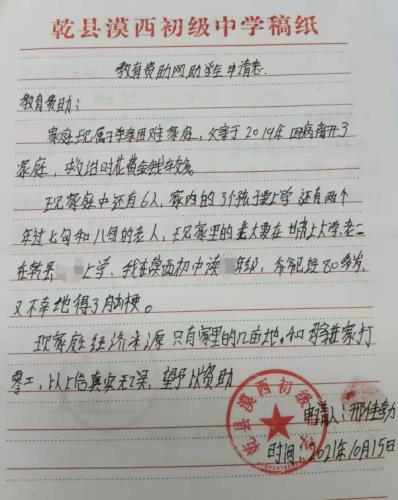 乾县漠西初级中学稿纸
教育资助网助学申请表
教育资助：
家庭现属于单亲困难家庭，父亲于2019年因病离开了
家庭，救治时花费金钱较多。
现家庭中还有6人，家内的3个孩子要上学 还有两个
年过七旬和八旬的老人，现家里的老大要在 上大学老二
在乾县 上学，我在漠西初中读 年级，爷爷已经80多岁，
又不幸地得了脑梗。
现家庭经济来源 只有家里的几亩地。和母亲进家打
零工，以上信息真实无误，望予以资助
申请人：邢佳勃
时间：2021年10月15日
乾县漠西初级中学